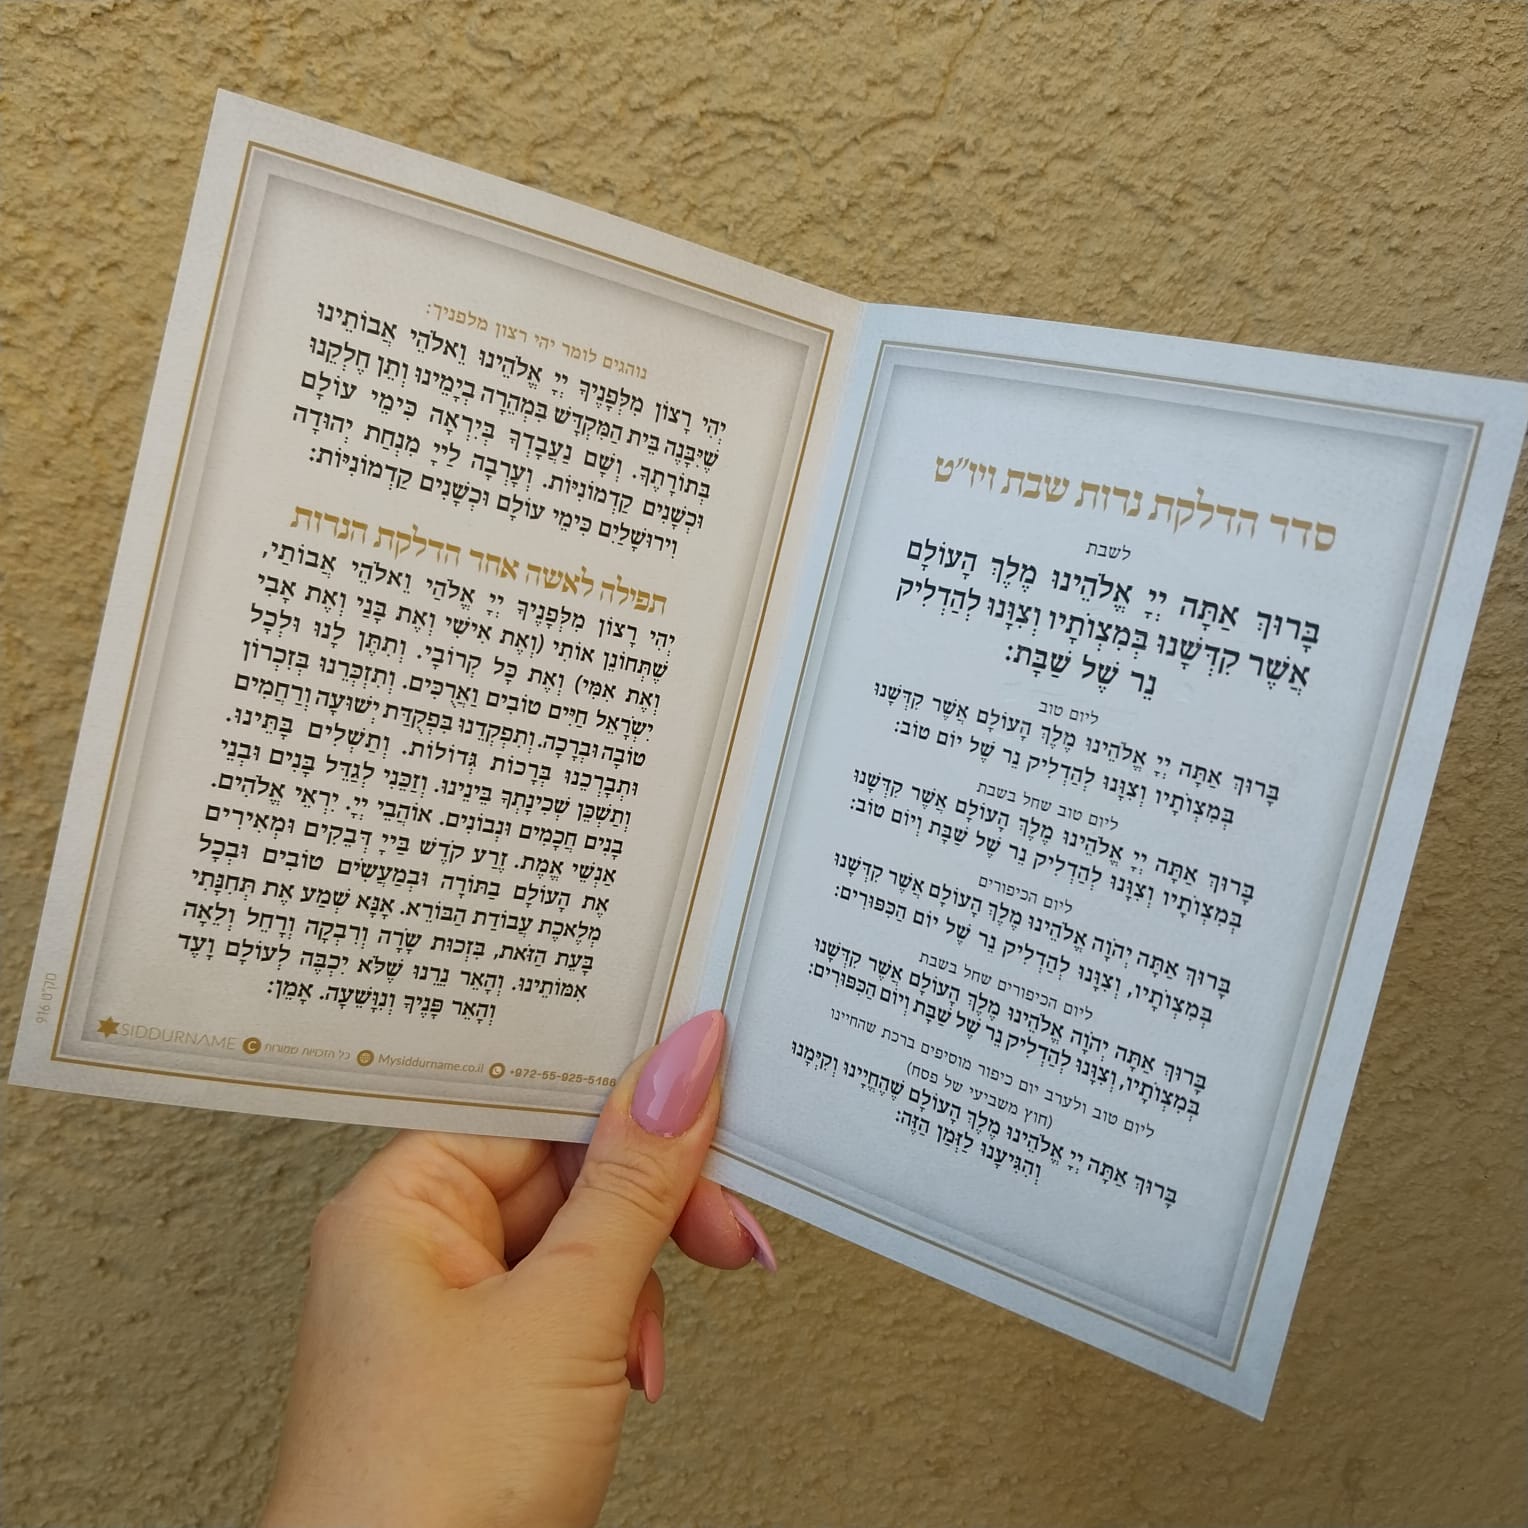 סדר הדלקת נרות שבת ויו״ט
לשבת
בָּרוּךְ אַתָּה יְיָ אֱלֹהֵינוּ מֶלֶךְ הָעוֹלָם
אֲשֶׁר קִדְּשָׁנוּ בְּמִצְוֹתָיו וְצִוָּנוּ לְהַדְלִיק
נֵר שֶׁל שַׁבָּת:
ליום טוב
בָּרוּךְ אַתָּה יְיָ אֱלֹהֵינוּ מֶלֶךְ הָעוֹלָם אֲשֶׁר קִדְּשָׁנוּ
בְּמִצְוֹתָיו וְצִוָּנוּ לְהַדְלִיק נֵר שֶׁל יוֹם טוֹב:
ליום טוב שחל בשבת
בָּרוּךְ אַתָּה יְיָ אֱלֹהֵינוּ מֶלֶךְ הָעוֹלָם אֲשֶׁר קִדְּשָׁנוּ
בְּמִצְוֹתָיו וְצִוָּנוּ לְהַדְלִיק נֵר שֶׁל שַׁבָּת וְיוֹם טוֹב:
ליום הכיפורים
בָּרוּךְ אַתָּה יְהֹוָה אֱלֹהֵינוּ מֶלֶךְ הָעוֹלָם אֲשֶׁר קִדְּשָׁנוּ
בְּמִצְוֹתָיו, וְצִוָּנוּ לְהַדְלִיק נֵר שֶׁל יוֹם הַכִּפּוּרִים:
ליום הכיפורים שחל בשבת
בָּרוּךְ אַתָּה יְהֹוָה אֱלֹהֵינוּ מֶלֶךְ הָעוֹלָם אֲשֶׁר קִדְּשָׁנוּ
בְּמִצְוֹתָיו, וְצִוָּנוּ לְהַדְלִיק נֵר שֶׁל שַׁבָּת וְיוֹם הַכִּפּוּרִים:
ליום טוב ולערב יום כיפור מוסיפים ברכת שהחיינו
(חוץ משביעי של פסח)
בָּרוּךְ אַתָּה יְיָ אֱלֹהֵינוּ מֶלֶךְ הָעוֹלָם שֶׁהֶחֱיָינוּ וְקִיְּמָנוּ
וְהִגִּיעָנוּ לַזְּמַן הַזֶּה:
נוהגים לומר יהי רצון מלפניך:
יְהִי רָצוֹן מִלְּפָנֶיךָ יְיָ אֱלֹהֵינוּ וֵאלֹהֵי אֲבוֹתֵינוּ
שֶׁיִּבָּנֶה בֵּית הַמִּקְדָּשׁ בִּמְהֵרָה בְיָמֵינוּ וְתֵן חֶלְקֵנוּ
בְּתוֹרָתֶךָ. וְשָׁם נַעֲבָדְךָ בְּיִרְאָה כִּימֵי עוֹלָם
וּכְשָׁנִים קַדְמוֹנִיּוֹת. וְעָרְבָה לַייָ מִנְחַת יְהוּדָה
וִירוּשָׁלַיִם כִּימֵי עוֹלָם וּכְשָׁנִים קַדְמוֹנִיּוֹת:
תפילה לאשה אחר הדלקת הנרות
יְהִי רָצוֹן מִלְּפָנֶיךָ יְיָ אֱלֹהַי וֵאלֹהֵי אֲבוֹתַי,
שֶׁתְּחוֹנֵן אוֹתִי (וְאֶת אִישִׁי וְאֶת בָּנַי וְאֶת אָבִי
וְאֶת אִמִּי) וְאֶת כָּל קְרוֹבַי. וְתִתֵּן לָנוּ וּלְכָל
יִשְׂרָאֵל חַיִּים טוֹבִים וַאֲרֻכִּים. וְתִזְכְּרֵנוּ בְּזִכְרוֹן
טוֹבָה וּבְרָכָה. וְתִפְקְדֵנוּ בִּפְקֻדַּת יְשׁוּעָה וְרַחֲמִים
וּתְבָרְכֵנוּ בְּרָכוֹת גְּדוֹלוֹת. וְתַשְׁלִים בָּתֵּינוּ.
וְתַשְׁכֵּן שְׁכִינָתְךָ בֵּינֵינוּ. וְזַכֵּנִי לְגַדֵּל בָּנִים וּבְנֵי
בָנִים חֲכָמִים וּנְבוֹנִים. אוֹהֲבֵי יְיָ. יִרְאֵי אֱלֹהִים.
אַנְשֵׁי אֱמֶת. זֶרַע קֹדֶשׁ בַּייָ דְּבֵקִים וּמְאִירִים
אֶת הָעוֹלָם בַּתּוֹרָה וּבְמַעֲשִׂים טוֹבִים וּבְכָל
מְלֶאכֶת עֲבוֹדַת הַבּוֹרֵא. אָנָּא שְׁמַע אֶת תְּחִנָּתִי
בָּעֵת הַזֹּאת, בִּזְכוּת שָׂרָה וְרִבְקָה וְרָחֵל וְלֵאָה
אִמּוֹתֵינוּ. וְהָאֵר נֵרֵנוּ שֶׁלֹּא יִכְבֶּה לְעוֹלָם וָעֶד
וְהָאֵר פָּנֶיךָ וְנִוָּשֵׁעָה. אָמֵן:
SIDDURNAME C כל הזכויות שמורות Mysiddurname.co.il +972-55-925-5166
מק״ט 916